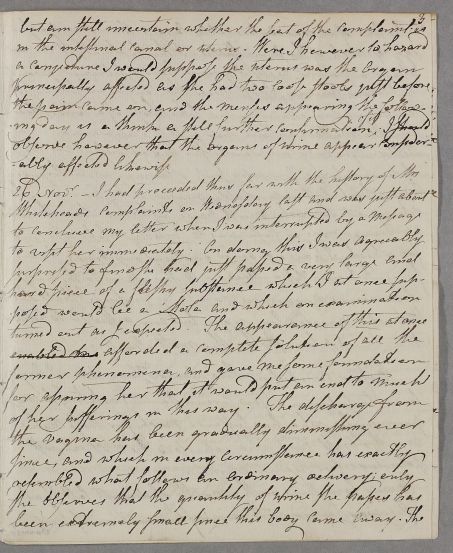 3
but am still uncertain whether the seat of the complaint is
in the intestinal canal or uterus. Were I however to hazard
a conjecture I would suppose the uterus was the organ
principally affected as she had two loose stools just before
the pain came on, and the menses appearing the follow-
ing day is a still further confirmation of it. I should
observe however that the organs of urine appear consider-
ably affected likewise
26 Novr. – I had proceeded thus far with the history of Mrs
Whiteheads complaints on Wednesday last and was just about
to conclude my letter when I was interrupted by a message
to visit her immediately. On doing this I was agreeably
surprised to find she had just passed a very large and
hard piece of a fleshy substance which I at once sup-
posed would be a Mola and which on examination
turned out as I expected. The appearance of this at once
enabled me afforded a complete solution of all the
former phenomena, and gave me some foundation
for assuring her that it would put an end to much
of her sufferings in this way. The discharge from
the vagina has been gradually diminishing ever
since, and which in every circumstance has exactly
resembled what follows an ordinary delivery; only
she observes that the quantity of urine she passes has
been extremely small since this body came away. The